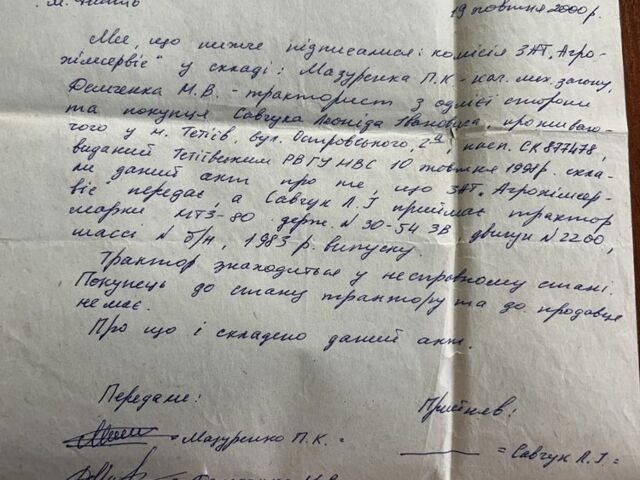 м. Тетіїв 19 жовтня 2000 р.
Ми, що нижче підписалися: комісія ЗАТ „Агро-
хімсервіс" у складі: Мазуренка П.К - нач. мех. загону,
Демченка М.В. - тракторист з однієї сторони
та покупця Савчука Леоніда Івановича, проживаю-
чого у м. Тетіїв, вул. Островського, 2а, пасп. СК 877478,
виданий Тетіївським РВ ГУ МВС 10 жовтня 1997р. скла-
ли даний акт про те, що ЗАТ „Агрохімсер-
віс" передає, а Савчук Л.І приймає трактор
марки МТЗ-80 держ. N 30-54 ЗВ двигун N 2200,
шассі N б/н, 1983 р. випуску.
Трактор знаходиться у несправному стані.
Покупець до стану трактору та до продавця
немає.
Про що і складено даний акт.
Передане: Прийняв:
= Мазуренко П.К. =
= Савчук Л.І =